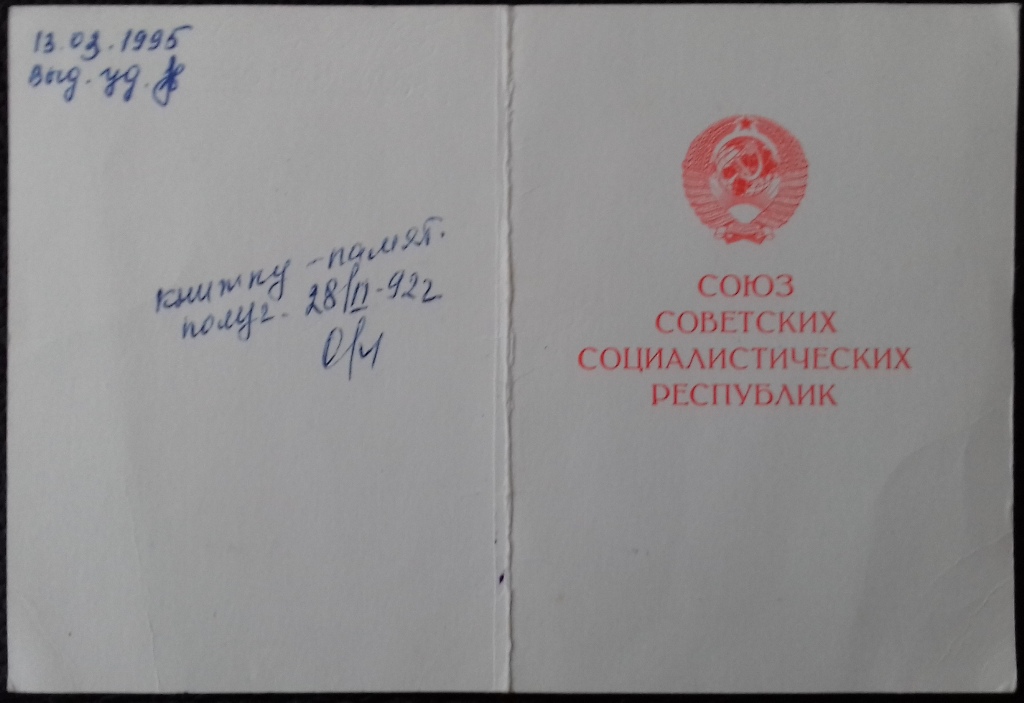 13.03.1995
выд. уд.
книжку - памят.
получ. 28/II-92г
СОЮЗ
СОВЕТСКИХ
СОЦИАЛИСТИЧЕСКИХ
РЕСПУБЛИК